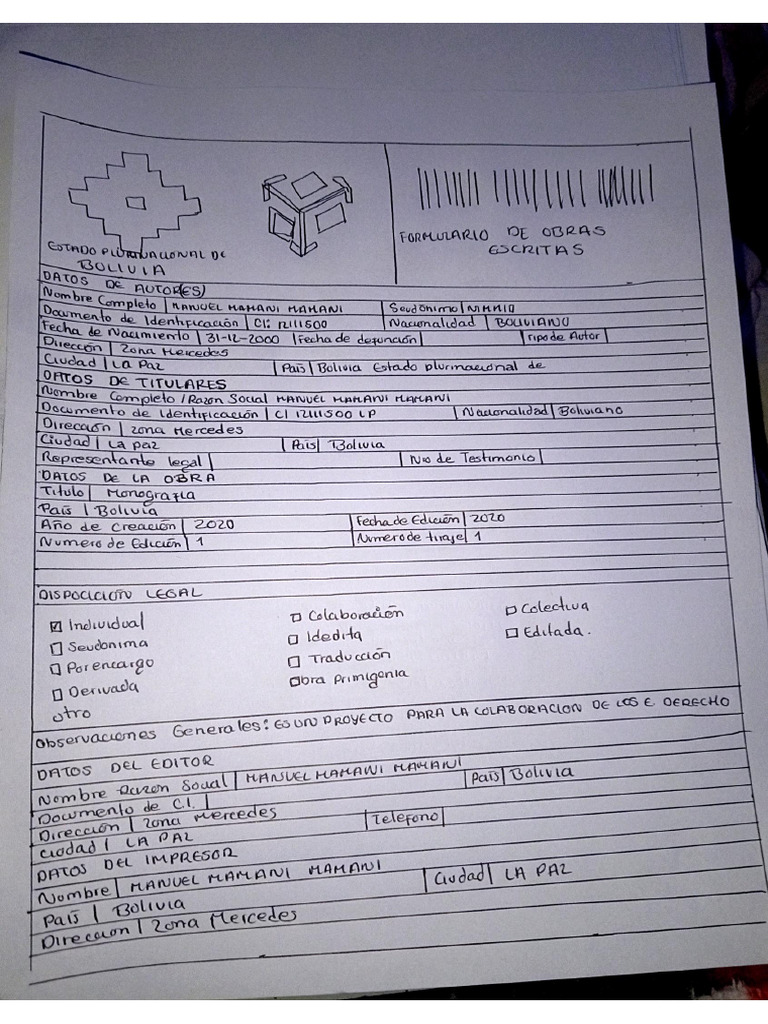 ESTADO PLURINACIONAL DE
BOLIVIA
FORMULARIO DE OBRAS
ESCRITAS
DATOS DE AUTOR(ES)
Nombre Completo | MANUEL MAMANI MAMANI | Seudónimo |
Documento de Identificación | CI: 12111500 | Nacionalidad | BOLIVIANO
Fecha de Nacimiento | 31-12-2000 | Fecha de defunción | | Tipo de Autor |
Dirección | Zona Mercedes
Ciudad | La Paz | País | Bolivia Estado plurinacional de
DATOS DE TITULARES
Nombre Completo / Razón Social MANUEL MAMANI MAMANI
Documento de Identificación | CI 12111500 LP | Nacionalidad | Boliviano
Dirección | Zona Mercedes
Ciudad | La Paz | País | Bolivia
Representante legal | | Nro de Testimonio |
DATOS DE LA OBRA
Título | Monografía
País | Bolivia
Año de Creación | 2020 | Fecha de Edición | 2020
Numero de Edición | 1 | Numero de tiraje | 1
DISPOCICIÓN LEGAL
Individual Colaboración Colectiva
Seudonima Idedita Editada.
Por encargo Traducción
Derivada Obra Primigenia
otro
Observaciones Generales: ES UN PROYECTO PARA LA COLABORACION DE LOS E DERECHO
DATOS DEL EDITOR
Nombre Razon Social | MANUEL MAMANI MAMANI | País | Bolivia
Documento de C.I. |
Dirección | Zona Mercedes | Telefono |
Ciudad | LA PAZ
DATOS DEL IMPRESOR
Nombre | MANUEL MAMANI MAMANI | Ciudad | LA PAZ
País | Bolivia
Dirección | Zona Mercedes